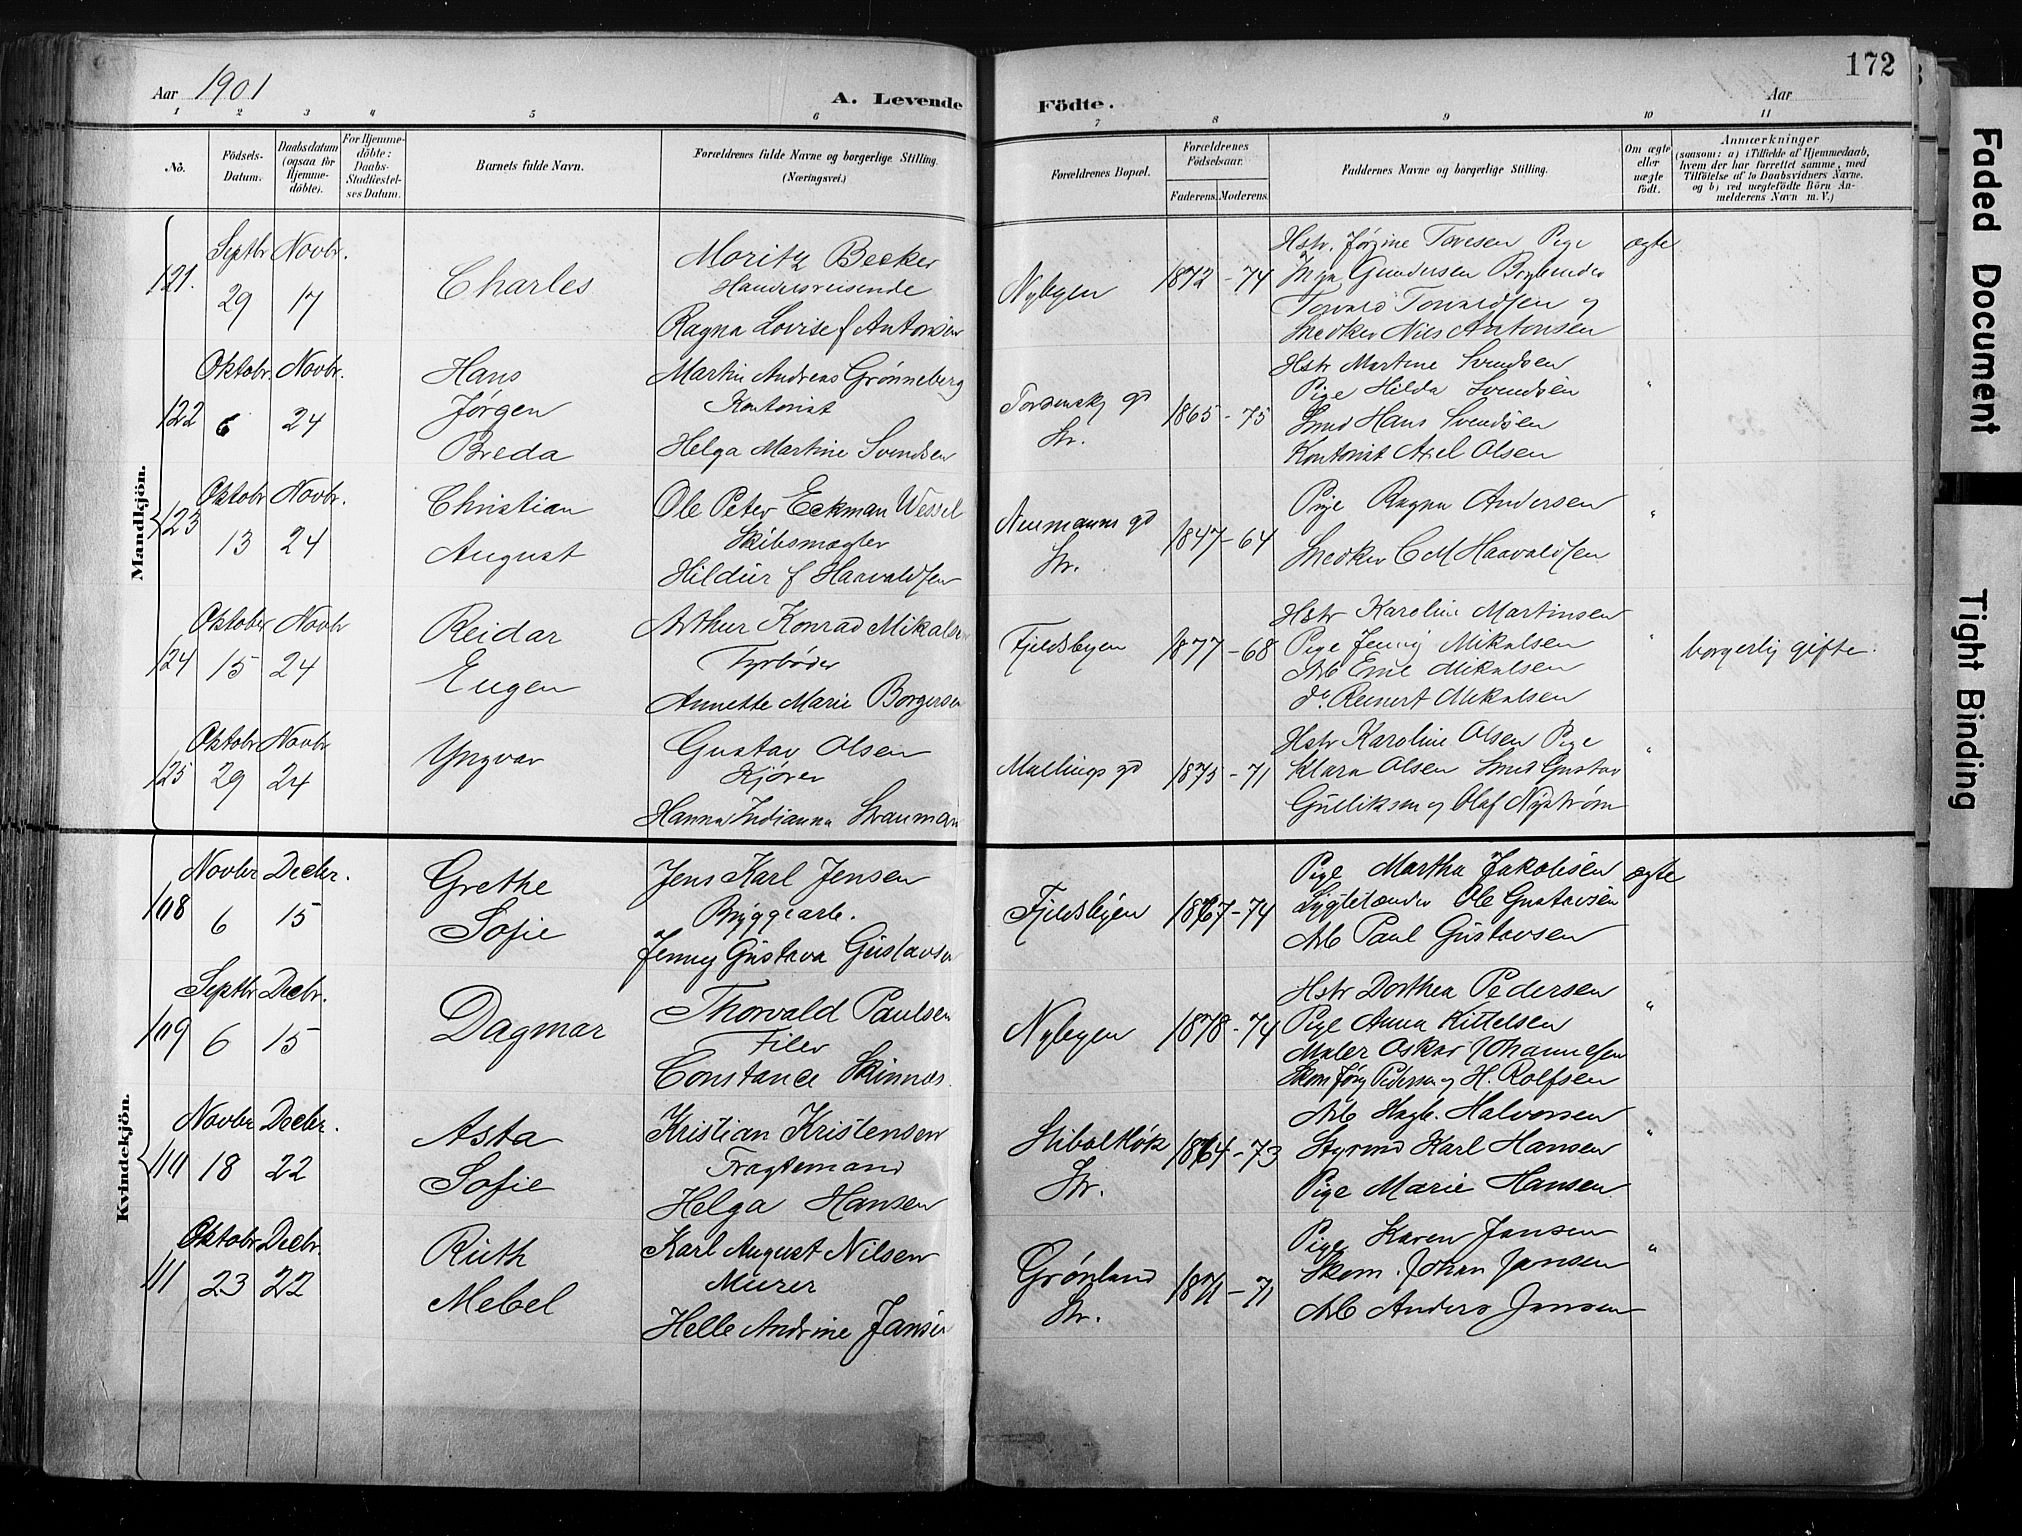 172
Aar 1901
A. Levende Födte.
Aar
1 2 3 4 5 6 7 8 9 10 11
No.
Födsels-Datum.
Daabsdatum (ogsaa for Hjemme-döbte).
For Hjemme-döbte: Daabs-Stadfæstelses Datum.
Barnets fulde Navn.
Forældrenes fulde Navne og borgerlige Stilling.
(Næringsvei.)
Forældrenes Bopæl.
Forældrenes Födselsaar.
Faderens. Moderens.
Faddernes Navne og borgerlige Stilling.
Om ægte eller uægte födt.
Anmærkninger
(saasom: a) i Tilfælde af Hjemmedaab,
hvem der har forrettet samme, med
Tilföielse af to Daabsvidners Navne.
og b) ved uægtefödte Börn An-
melderens Navn m. V.)
Mandkjön.
121.
Septbr 29
Novbr. 17
Charles
Moritz Becker
Handelsreisende
Ragna Lovise f Antonsen
Nybyen
1872 - 74
Hstr. Jørgine Toresen Pige
Gundersen
Torvald Torvaldsen og
Snedker Nils Antonsen
ægte
122
Oktobr. 6
Novbr. 24
Hans
Jørgen
Breda
Martin Andreas Grønneberg
Kontorist
Helga Martine Svendsen
Tordensk gd
Str.
1865 - 75
Hstr Martine Svendsen
Pige Hilda Svendsen
Smed Hans Svendsen
Kontorist Axel Olsen
"
123
Oktobr 13
Novbr. 24
Christian
August
Ole Peter Eckman Wessel
Skibsmægler
Hildur f Haavaldsen
Neumanns gd
Str.
1847 - 64
Pige Ragna Andersen
Snedker C M Haavaldsen
"
124
Oktober 15
Novbr 24
Reidar
Eugen
Arthur Konrad Mikalsen
Fyrbøder
Annette Marie Borgersen
Fjeldsbyen
1877 - 68
Hstr Karoline Martinsen
Pige Jenny Mikalsen
Arb Emil Mikalsen
do Reinert Mikalsen
"
borgerlig gifte.
125
Oktobr 29
Novbr 24
Yngvar
Gustav Olsen
Kjører
Hanna Indianna Strauman
Mallings gd
1875 - 71
Hstr Karoline Olsen Pige
Klara Olsen Smed Gustav
Gulliksen og Olaf Nystrøm
"
Kvindekjön.
108
Novbr 6
Decbr. 15
Grethe
Sofie
Jens Karl Jensen
Bryggearb.
Jenny Gustava Gustavsen
Fjeldsbyen
1867 - 74
Pige Martha Jakobsen
Lygtetænder Ole Gustavsen
Arb Paul Gustavsen
ægte
109
Septbr 6
Decbr. 15
Dagmar
Thorvald Paulsen
Filer
Constance Skinnæs.
Nybyen
1878 - 74
Hstr Dorthea Pedersen
Pige Anna Kittelsen
Maler Oskar Johannesen
Skom Jørg Pedersen og H. Rolfsen
"
110
Novbr 18
Decbr. 22
Asta
Sofie
Kristian Kristensen
Fragtemand
Helga Hansen
Stibolthøk
Str.
1864 - 73
Arb Hagb. Halvorsen
Styrmd Karl Hansen
Pige Marie Hansen
"
111
Oktobr 23
Decbr. 22
Ruth
Mebel
Karl August Nilsen
Murer
Helle Andrine Jansen
Grønland
Str.
1871 - 71
Pige Karen Jansen
Skom. Johan Jansen
Arb Anders Jansen
"
Faded Document
Tight Binding